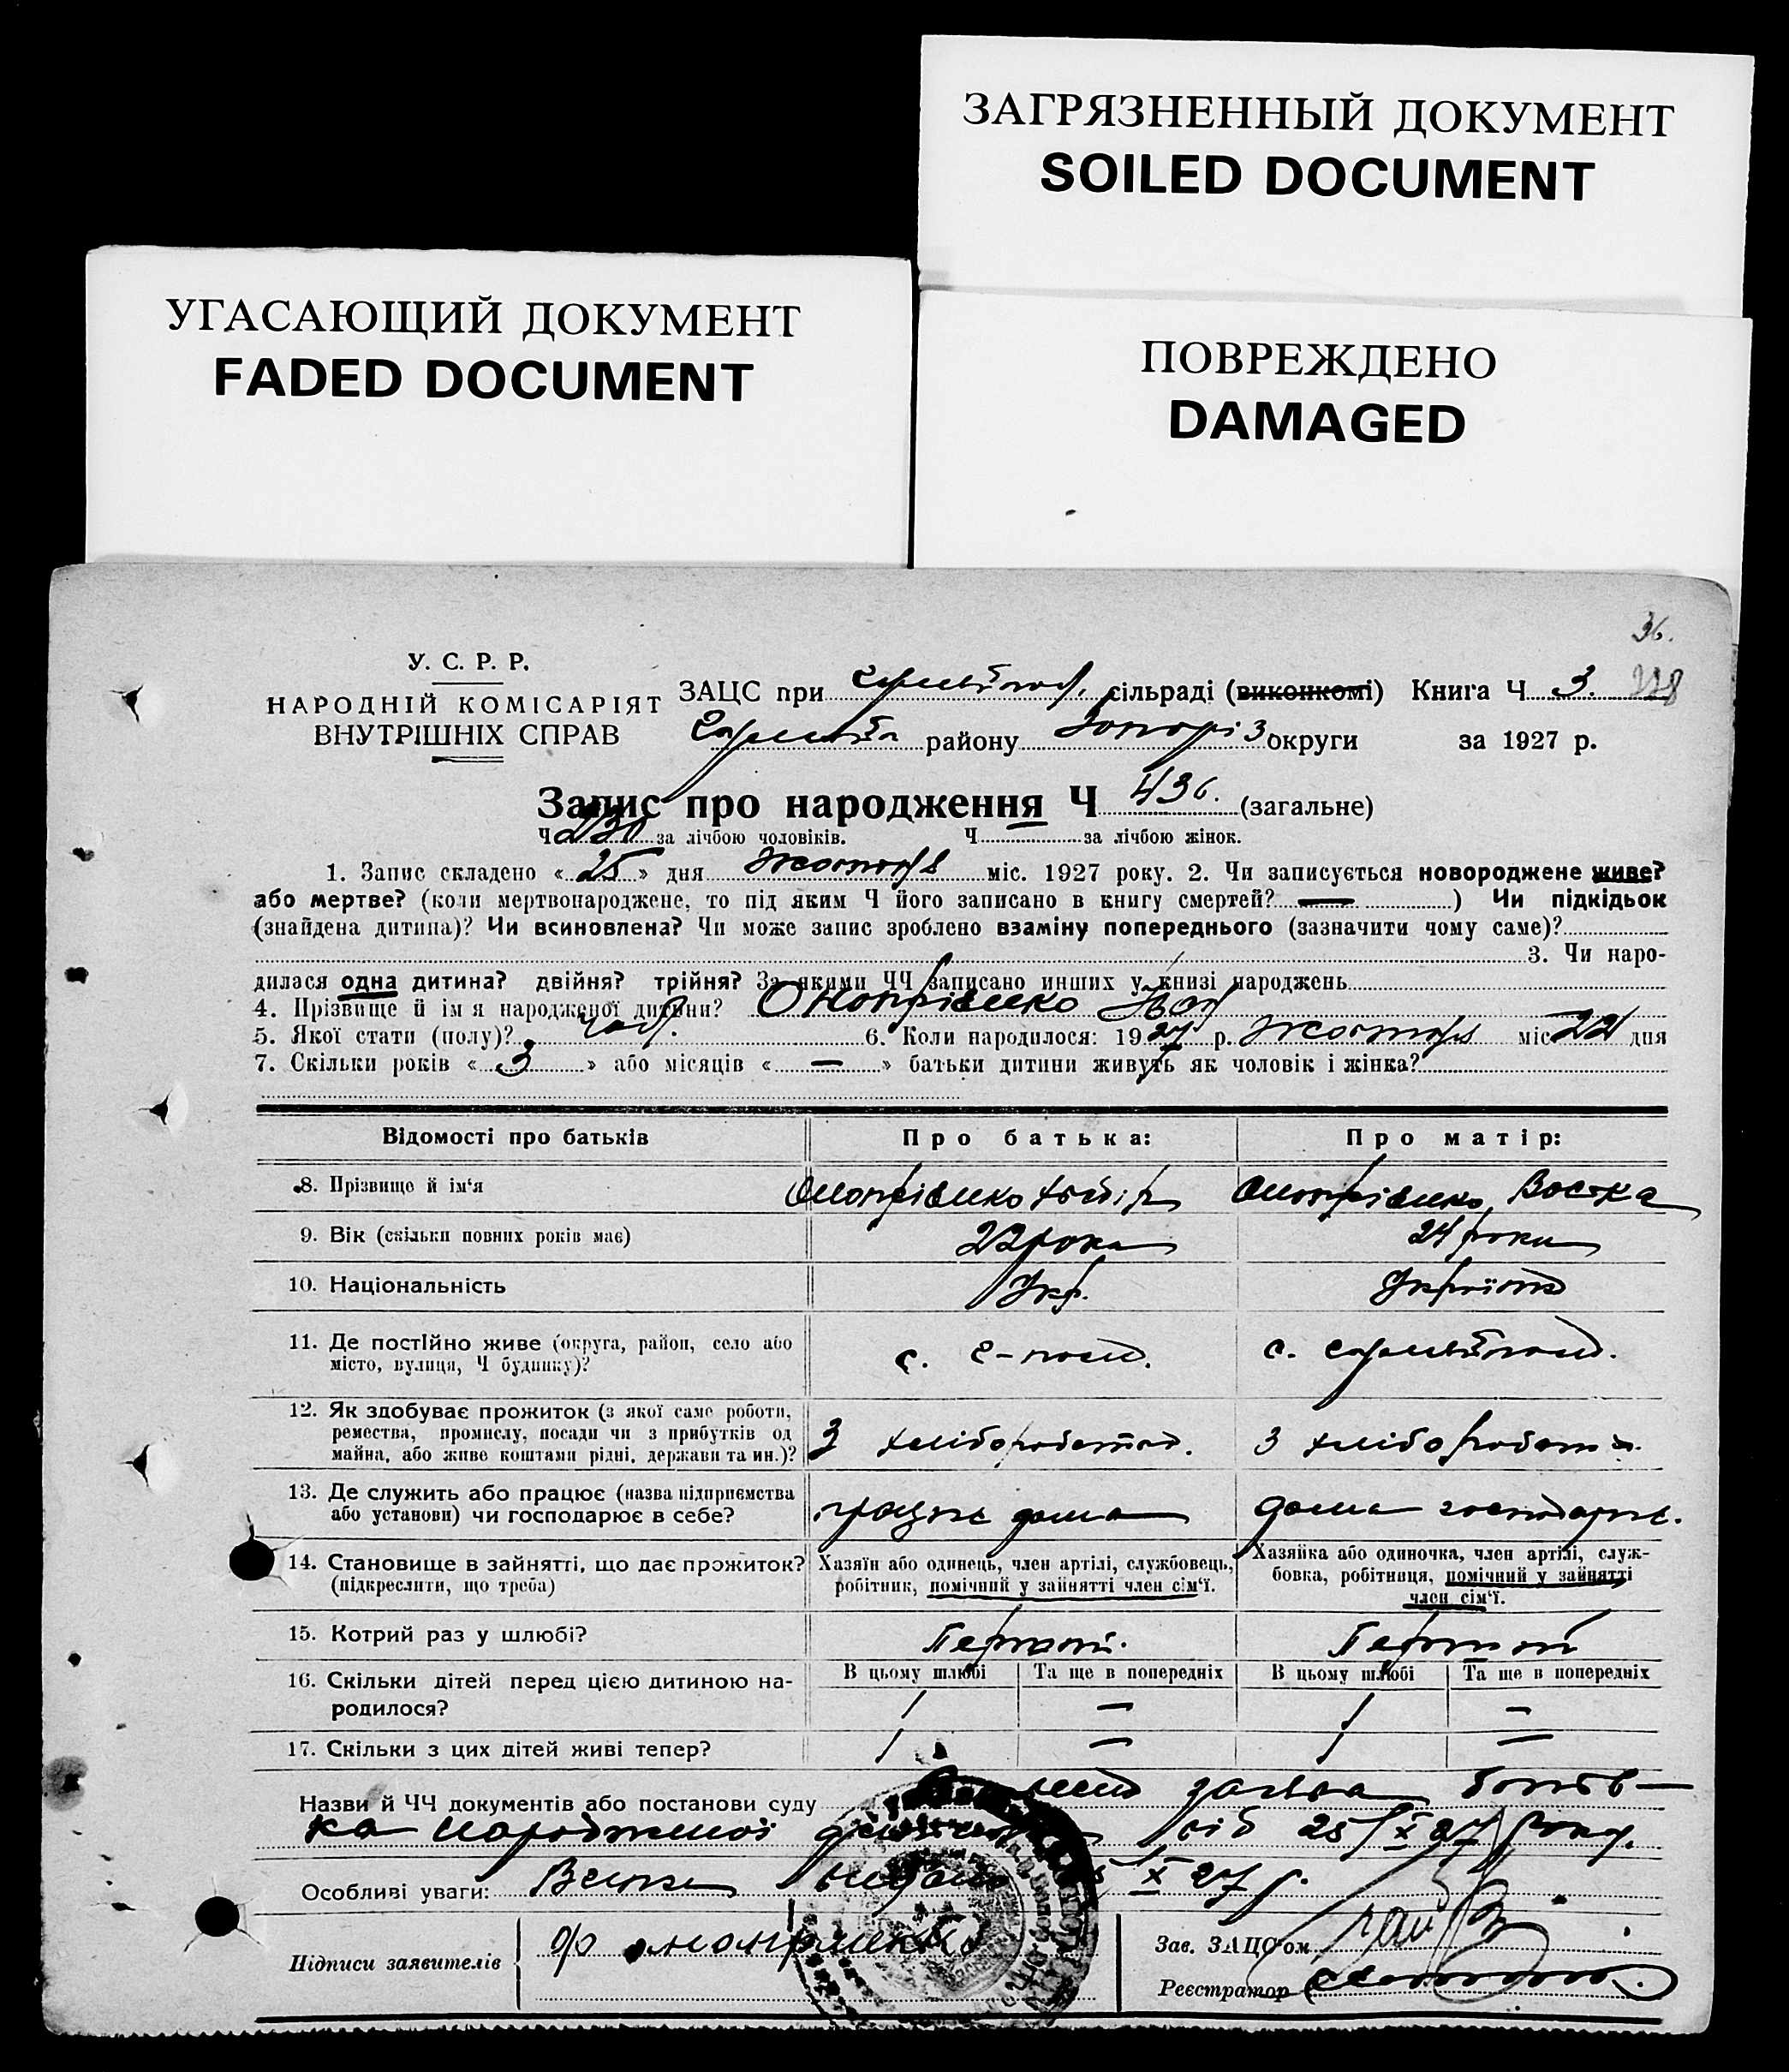 ЗАГРЯЗНЕННЫЙ ДОКУМЕНТ
SOILED DOCUMENT
УГАСАЮЩИЙ ДОКУМЕНТ
FADED DOCUMENT
ПОВРЕЖДЕНО
DAMAGED
36.
У. С. Р. Р.
НАРОДНІЙ КОМІСАРІЯТ
ВНУТРІШНІХ СПРАВ
ЗАЦС при сільраді (виконкомі) Книга Ч 3.
району Запоріз округи за 1927 р.
Запис про народження Ч 436. (загальне)
Ч 230 за лічбою чоловіків. Ч за лічбою жінок.
1. Запис складено « 25 » дня жовтня міс. 1927 року. 2. Чи записується новороджене живе?
або мертве? (коли мертвонароджене, то під яким Ч його записано в книгу смертей? — ) Чи підкідьок
(знайдена дитина)? Чи всиновлена? Чи може запис зроблено взаміну попереднього (зазначити чому саме)?
3. Чи наро-
дилася одна дитина? двійня? трійня? За якими ЧЧ записано инших у книзі народжень
4. Прізвище й ім'я народженої дитини? Онопрієнко
5. Якої стати (полу)? чол. 6. Коли народилося: 1927 р. жовтня міс 22 дня
7. Скільки років « 3 » або місяців « — » батьки дитини живуть як чоловік і жінка?
Відомості про батьків Про батька: Про матір:
8. Прізвище й ім'я Онопрієнко Онопрієнко
9. Вік (скільки повних років має) 22 рока 24 роки
10. Національність Укр.
11. Де постійно живе (округа, район, село або
місто, вулиця, Ч будинку)? с. с.
12. Як здобуває прожиток (з якої саме роботи,
ремества, промислу, посади чи з прибутків од
майна, або живе коштами рідні, держави та ин.)? З З
13. Де служить або працює (назва підприємства
або установи) чи господарює в себе? працює дома дома господарює.
14. Становище в зайнятті, що дає прожиток?
(підкреслити, що треба)
Хазяїн або одинець, член артілі, службовець,
робітник, помічний у зайнятті член сім'ї.
Хазяйка або одиночка, член артілі, служ-
бовка, робітниця, помічний у зайнятті
член сім'ї.
15. Котрий раз у шлюбі? Перший. Перший
16. Скільки дітей перед цією дитиною на-
родилося?
В цьому шлюбі Та ще в попередніх В цьому шлюбі Та ще в попередніх
1 — 1 —
17. Скільки з цих дітей живі тепер? 1 — 1 —
Назви й ЧЧ документів або постанови суду заява батьк-
ка народженої від 25/X 27 року.
Особливі уваги: X 27 р.
Підписи заявителів
Зав. ЗАЦС'ом
Реєстратор